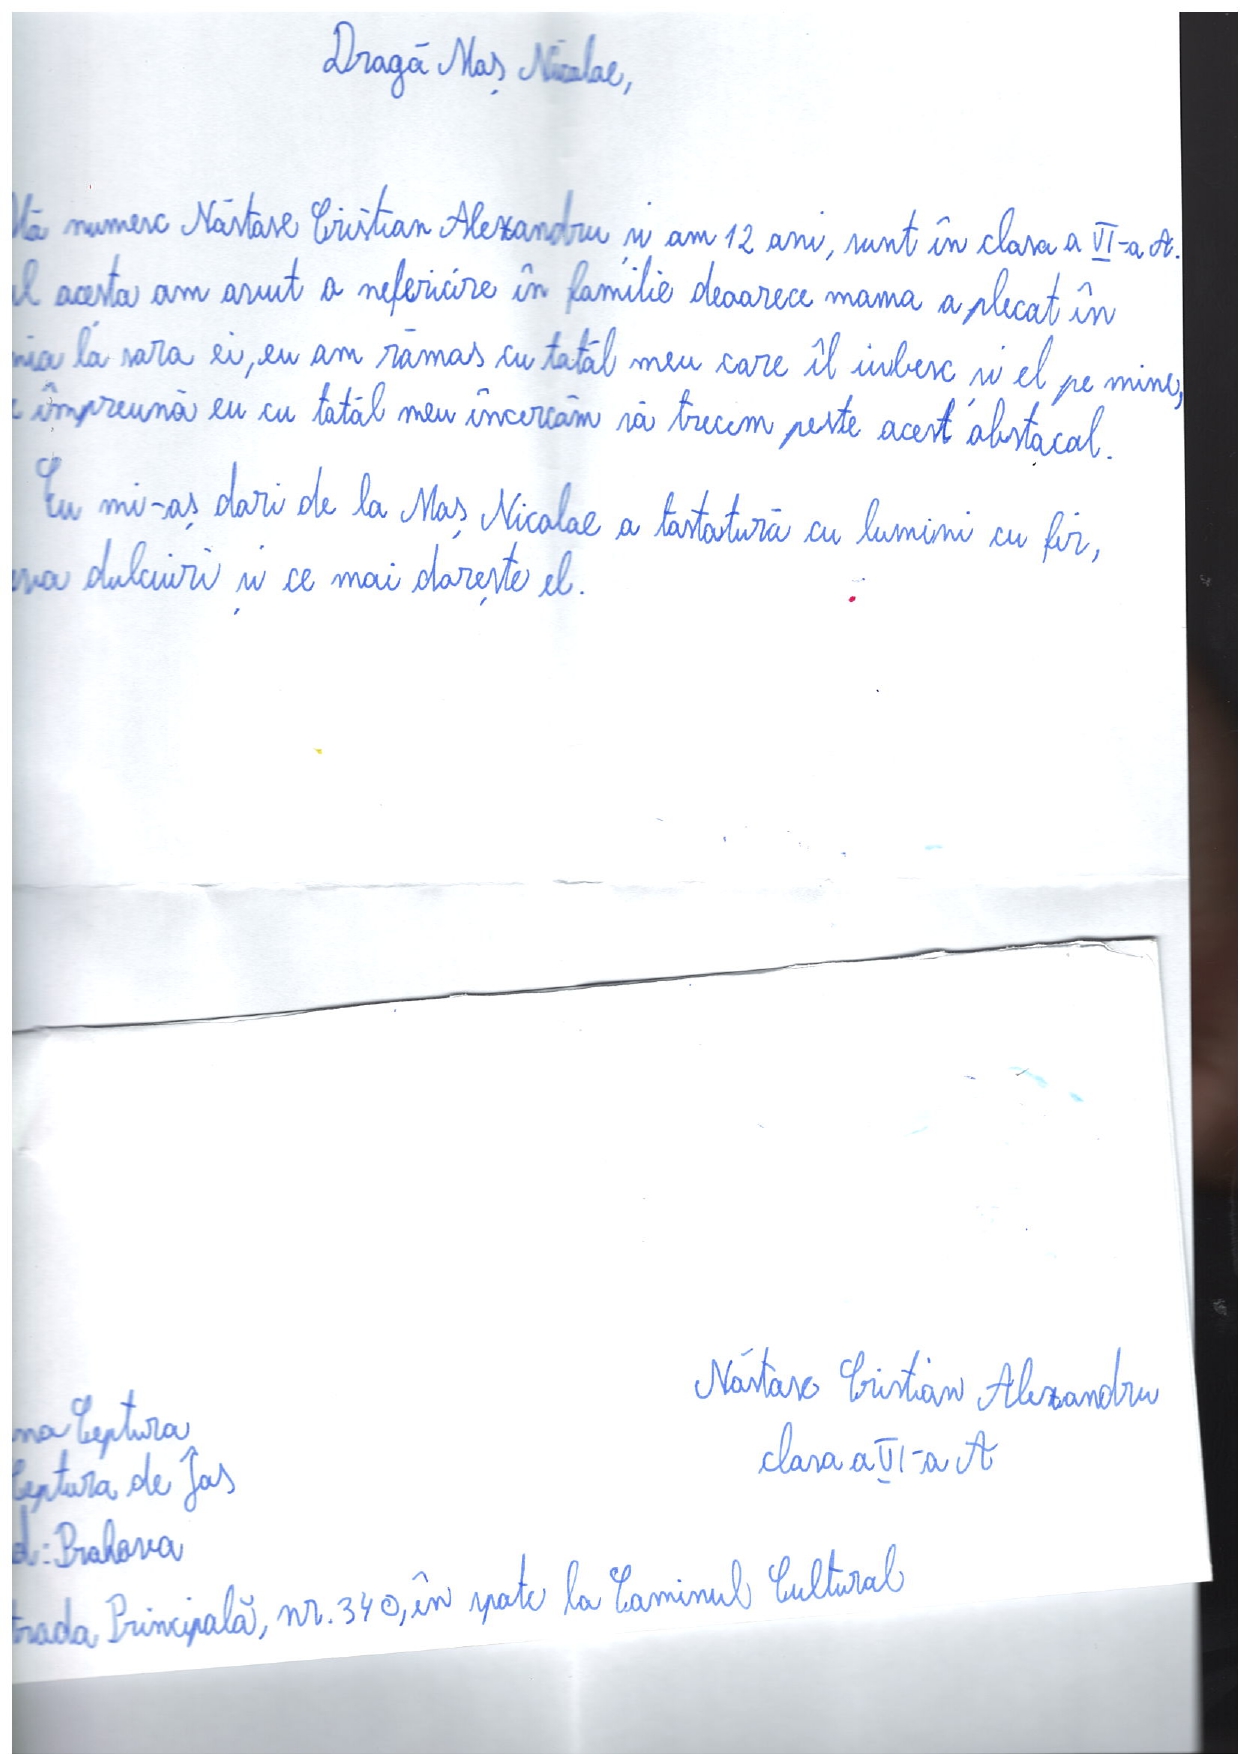 Dragă Moș Nicolae,
Mă numesc Năstase Cristian Alexandru și am 12 ani, sunt în clasa a VI-a A.
acesta am avut o nefericire în familie deoarece mama a plecat în
la sora ei, eu am rămas cu tatăl meu care îl iubesc și el pe mine,
împreună eu cu tatăl meu încercăm să trecem peste acest obstacol.
Eu mi-aș dori de la Moș Nicolae o tastatură cu lumini cu fir,
dulciuri și ce mai dorește el.
Năstase Cristian Alexandru
clasa a VI-a A
na Ceptura
Ceptura de Jos
d: Prahova
trada Principală, nr. 340, în spate la Caminul Cultural